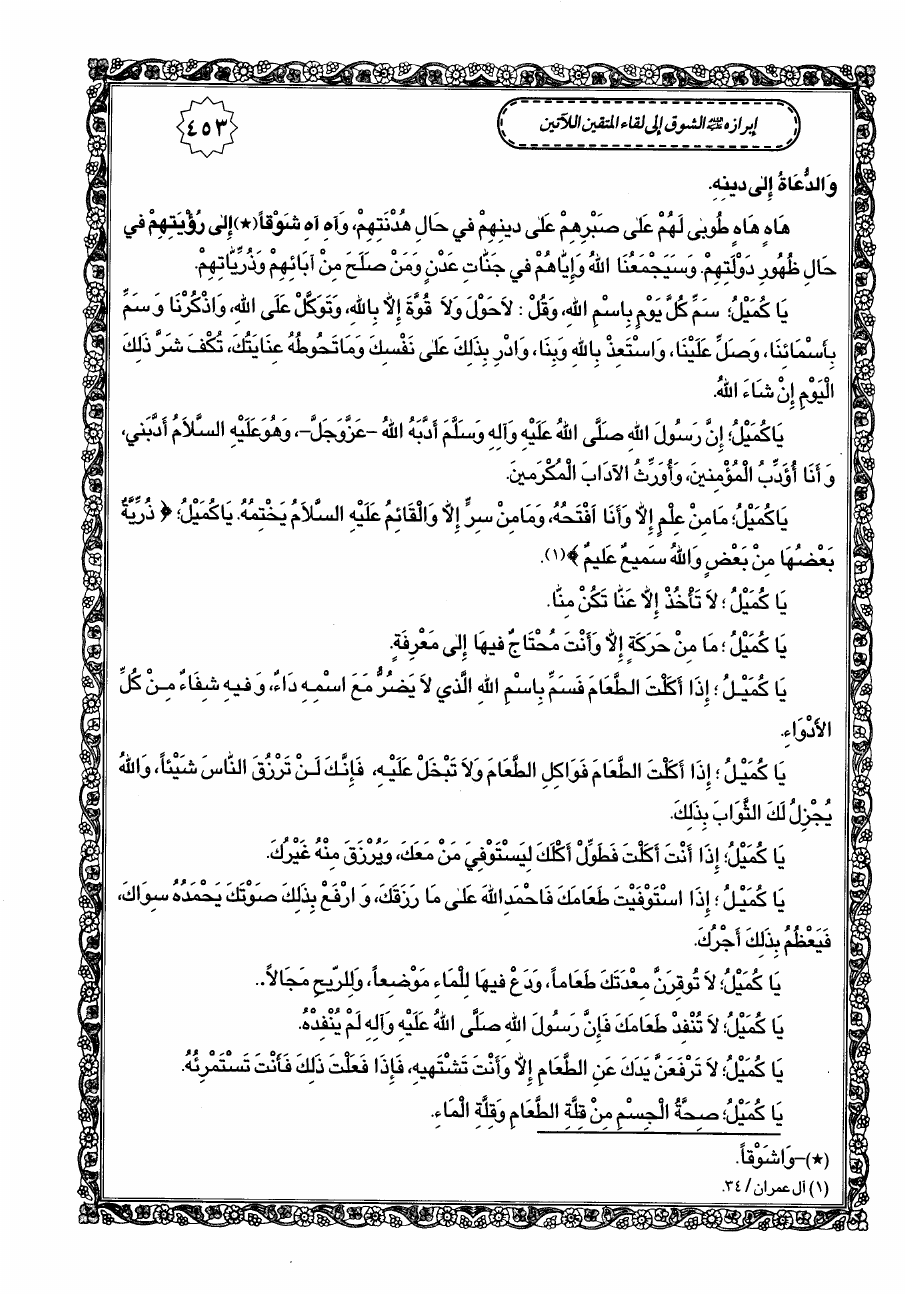 إبرازه ﷺ الشوق إلى لقاء المتقين اللآتين
٤٥٣
وَالدُّعَاةُ إِلىٰ دينِهِ.
هَاهٍ هَاهٍ طُوبى لَهُمْ عَلىٰ صَبْرِهِمْ عَلىٰ دينِهِمْ في حَالِ هُدْنَتِهِمْ، وَآهِ آهِ شَوْقاً(★) إِلىٰ رُؤْيَتِهِمْ في
حَالِ ظُهُورِ دَوْلَتِهِمْ. وَسَيَجْمَعُنَا اللهُ وَإِيَّاهُمْ في جَنَّاتِ عَدْنٍ وَمَنْ صَلَحَ مِنْ آبَائِهِمْ وَذُرِّيَّاتِهِمْ.
يَا كُمَيْلُ؛ سَمِّ كُلَّ يَوْمٍ بِاسْمِ اللهِ، وَقُلْ : لاَحَوْلَ وَلاَ قُوَّةَ إِلاَّ بِاللهِ، وَتَوَكَّلْ عَلَى اللهِ، وَاذْكُرْنَا وَ سَمِّ
بِأَسْمَائِنَا، وَصَلِّ عَلَيْنَا، وَاسْتَعِذْ بِاللهِ وَبِنَا، وَادْرِ بِذَلِكَ عَلىٰ نَفْسِكَ وَمَا تَحُوطُهُ عِنَايَتُكَ، تُكْفَ شَرَّ ذَلِكَ
الْيَوْمِ إِنْ شَاءَ اللهُ.
يَاكُمَيْلُ؛ إِنَّ رَسُولَ اللهِ صَلَّى اللهُ عَلَيْهِ وَآلِهِ وَسَلَّمَ أَدَّبَهُ اللهُ –عَزَّوَجَلَّ–، وَهُوَعَلَيْهِ السَّلاَمُ أَدَّبَني،
وَ أَنَا أُؤَدِّبُ الْمُؤْمِنينَ، وَأُوَرِّثُ الآدَابَ الْمُكْرَمينَ.
يَاكُمَيْلُ؛ مَامِنْ عِلْمٍ إِلاَّ وَأَنَا أَفْتَحُهُ، وَمَامِنْ سِرٍّ إِلاَّ وَالْقَائِمُ عَلَيْهِ السَّلاَمُ يَخْتِمُهُ. يَاكُمَيْلُ؛ ﴿ ذُرِّيَّةً
بَعْضُهَا مِنْ بَعْضٍ وَاللهُ سَميعٌ عَليمٌ ﴾(١).
يَا كُمَيْلُ ؛ لاَ تَأْخُذْ إِلاَّ عَنَّا تَكُنْ مِنَّا.
يَا كُمَيْلُ ؛ مَا مِنْ حَرَكَةٍ إِلاَّ وَأَنْتَ مُحْتَاجٌ فيهَا إِلىٰ مَعْرِفَةٍ.
يَا كُمَيْلُ ؛ إِذَا أَكَلْتَ الطَّعَامَ فَسَمِّ بِاسْمِ اللهِ الَّذي لاَ يَضُرُّ مَعَ اسْمِهِ دَاءٌ، وَ فيهِ شِفَاءٌ مِنْ كُلِّ
الأَدْوَاءِ.
يَا كُمَيْلُ ؛ إِذَا أَكَلْتَ الطَّعَامَ فَوَاكِلِ الطَّعَامَ وَلاَ تَبْخَلْ عَلَيْهِ، فَإِنَّكَ لَنْ تَرْزُقَ النَّاسَ شَيْئاً، وَاللهُ
يُجْزِلُ لَكَ الثَّوَابَ بِذَلِكَ.
يَا كُمَيْلُ؛ إِذَا أَنْتَ أَكَلْتَ فَطَوِّلْ أَكْلَكَ لِيَسْتَوْفِيَ مَنْ مَعَكَ، وَيُرْزَقَ مِنْهُ غَيْرُكَ.
يَا كُمَيْلُ ؛ إِذَا اسْتَوْفَيْتَ طَعَامَكَ فَاحْمَدِ اللهَ عَلىٰ مَا رَزَقَكَ، وَ ارْفَعْ بِذَلِكَ صَوْتَكَ يَحْمَدُهُ سِوَاكَ،
فَيَعْظُمُ بِذَلِكَ أَجْرُكَ.
يَا كُمَيْلُ؛ لاَ تُوقِرَنَّ مِعْدَتَكَ طَعَاماً، وَدَعْ فيهَا لِلْمَاءِ مَوْضِعاً، وَلِلرّيحِ مَجَالاً..
يَا كُمَيْلُ؛ لاَ تُنْفِدْ طَعَامَكَ فَإِنَّ رَسُولَ اللهِ صَلَّى اللهُ عَلَيْهِ وَآلِهِ لَمْ يُنْفِدْهُ.
يَا كُمَيْلُ؛ لاَ تَرْفَعَنَّ يَدَكَ عَنِ الطَّعَامِ إِلاَّ وَأَنْتَ تَشْتَهيهِ، فَإِذَا فَعَلْتَ ذَلِكَ فَأَنْتَ تَسْتَمْرِئُهُ.
يَا كُمَيْلُ؛ صِحَّةُ الْجِسْمِ مِنْ قِلَّةِ الطَّعَامِ وَقِلَّةِ الْمَاءِ.
(★)–وَاشَوْقاً.
(١) آل عمران / ٣٤.